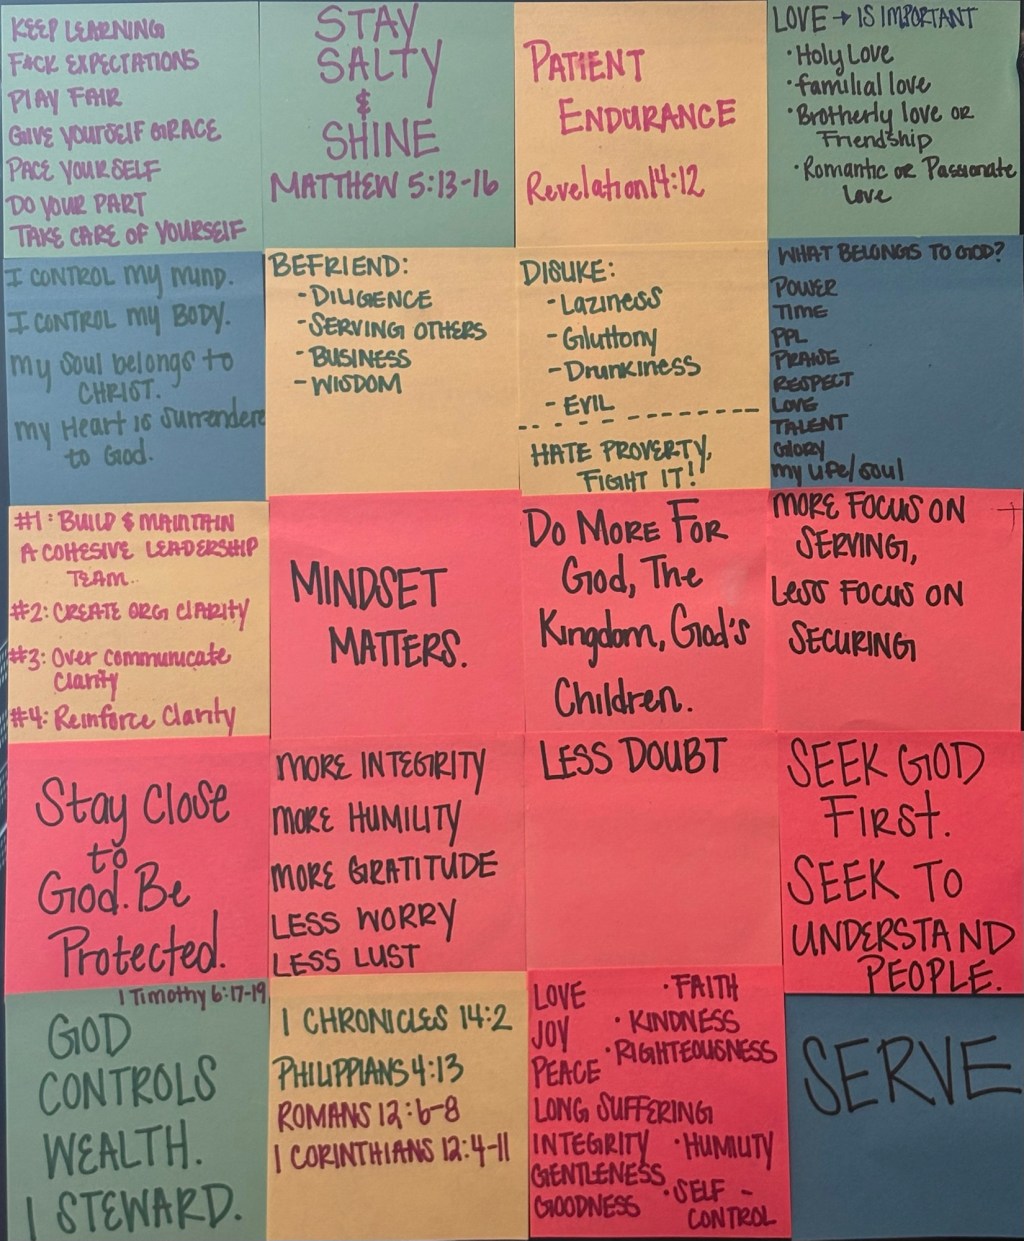 KEEP LEARNING
F*CK EXPECTATIONS
PLAY FAIR
GIVE YOURSELF GRACE
PACE YOURSELF
DO YOUR PART
TAKE CARE OF YOURSELF
STAY
SALTY
&
SHINE
MATTHEW 5:13-16
PATIENT
ENDURANCE
Revelation 14:12
LOVE → IS IMPORTANT
• Holy Love
• familial love
• Brotherly love OR
Friendship
• Romantic or Passionate
Love
I CONTROL my mind.
I CONTROL my BODY.
my soul belongs to
CHRIST.
my Heart is Surrendere
to God.
BEFRIEND:
- DILIGENCE
- SERVING OTHERS
- BUSINESS
- WISDOM
DISLIKE:
- Laziness
- Gluttony
- Drunkiness
- EVIL
HATE PROVERTY,
FIGHT IT!
WHAT BELONGS TO GOD?
POWER
TIME
PPL
PRAISE
RESPECT
LOVE
TALENT
GLORY
my life/soul
#1: BUILD & MAINTAIN
A COHESIVE LEADERSHIP
TEAM.
#2: CREATE ORG CLARITY
#3: Over communicate
Clarity
#4: Reinforce Clarity
MINDSET
MATTERS.
DO MORE FOR
God, The
Kingdom, God's
Children.
MORE FOCUS ON
SERVING,
Less FOCUS ON
SECURING
Stay Close
to
God. Be
Protected.
MORE INTEGIRITY
MORE HUMILITY
MORE GRATITUDE
LESS WORRY
LESS LUST
LESS DOUBT
SEEK GOD
FIRST.
SEEK TO
UNDERSTAND
PEOPLE.
1 Timothy 6:17-19
GOD
CONTROLS
WEALTH.
I STEWARD.
1 CHRONICLES 14:2
PHILIPPIANS 4:13
ROMANS 12:6-8
1 CORINTHIANS 12:4-11
LOVE • FAITH
JOY • KINDNESS
PEACE • RIGHTEOUSNESS
LONG SUFFERING
INTEGRITY • HUMILITY
GENTLENESS
GOODNESS • SELF -
CONTROL
SERVE